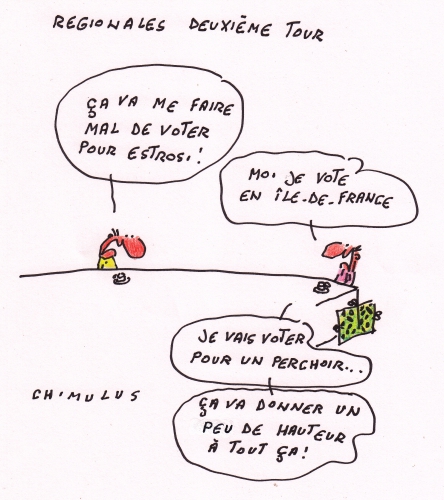 REGIONALES DEUXIÈME TOUR
ÇA VA ME FAIRE
MAL DE VOTER
POUR ESTROSI!
MOI JE VOTE
EN ÎLE-DE-FRANCE
JE VAIS VOTER
POUR UN PERCHOIR...
ÇA VA DONNER UN
PEU DE HAUTEUR
À TOUT ÇA!
CHIMULUS